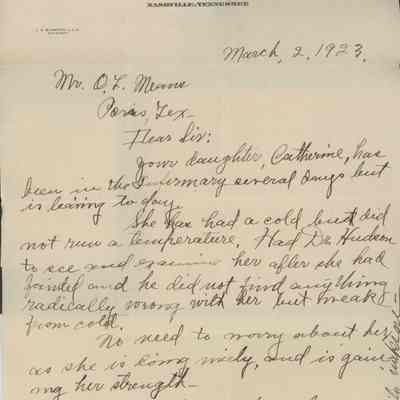 NASHVILLE, TENNESSEE
March, 2, 1923.
Mr. O. L. Means
Paris, Tex—
Dear Sir:
Your daughter, Catherine, has
been in the Infirmary several days but
is leaving to day.
She has had a cold but did
not run a temperature. Had Dr. Hudson
to see and examine her after she had
fainted and he did not find anything
radically wrong with her but weak
from cold.
No need to worry about her
as she is doing nicely, and is gain-
ing her strength—